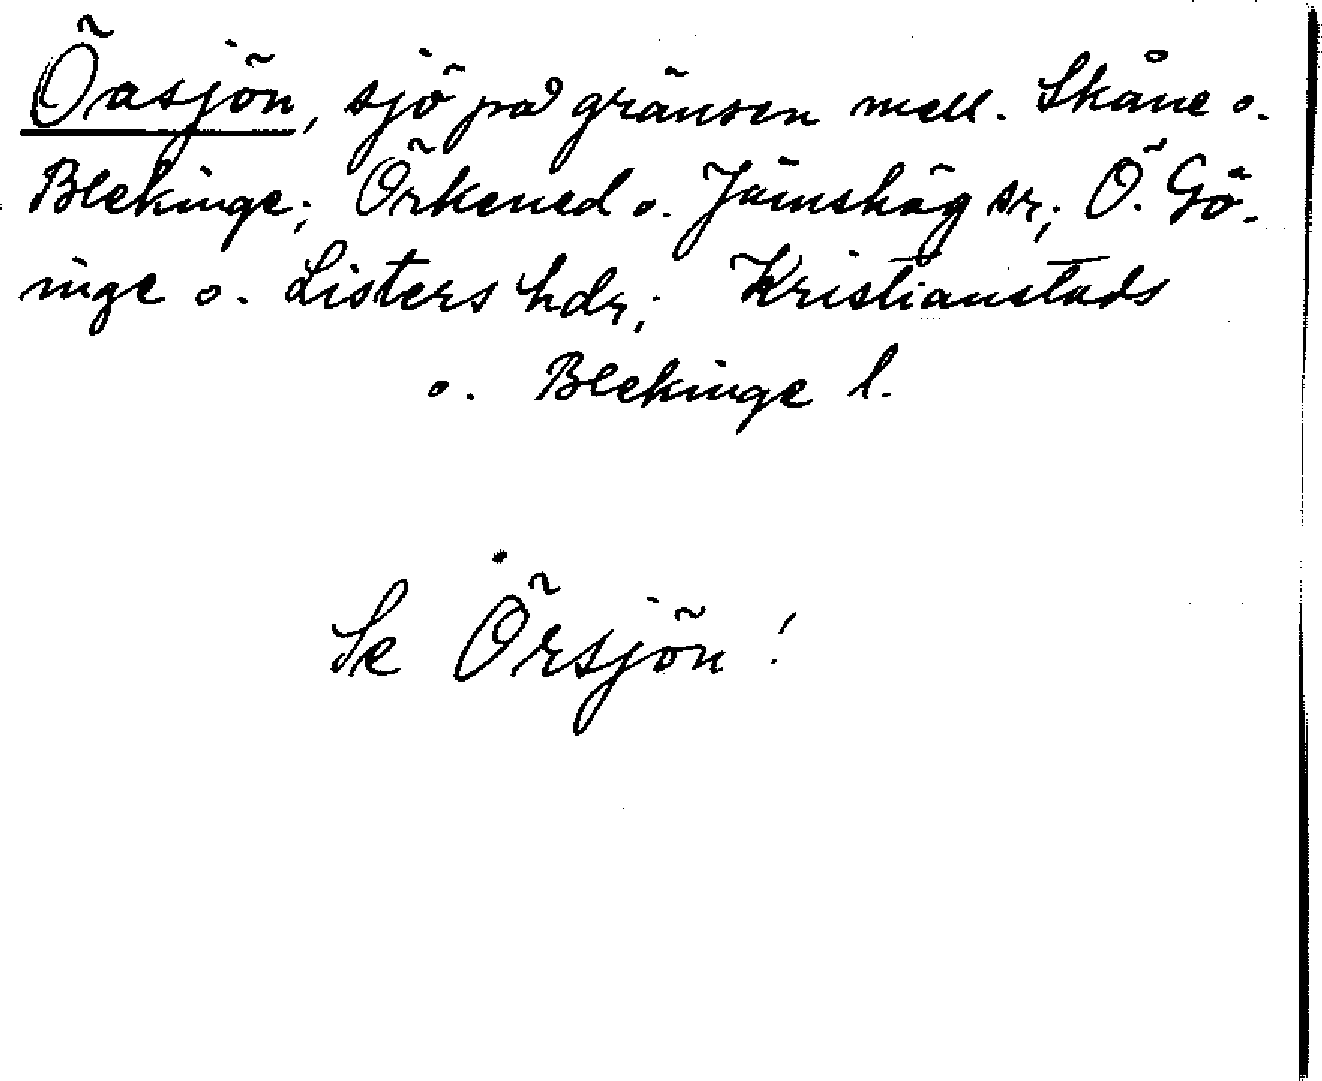 Öasjön, sjö på gränsen mell. Skåne o.
Blekinge; Örkened o. Jämshög sr; Ö. Gö-
inge o. Listers hdr; Kristianstads
o. Blekinge l.
Se Örsjön!